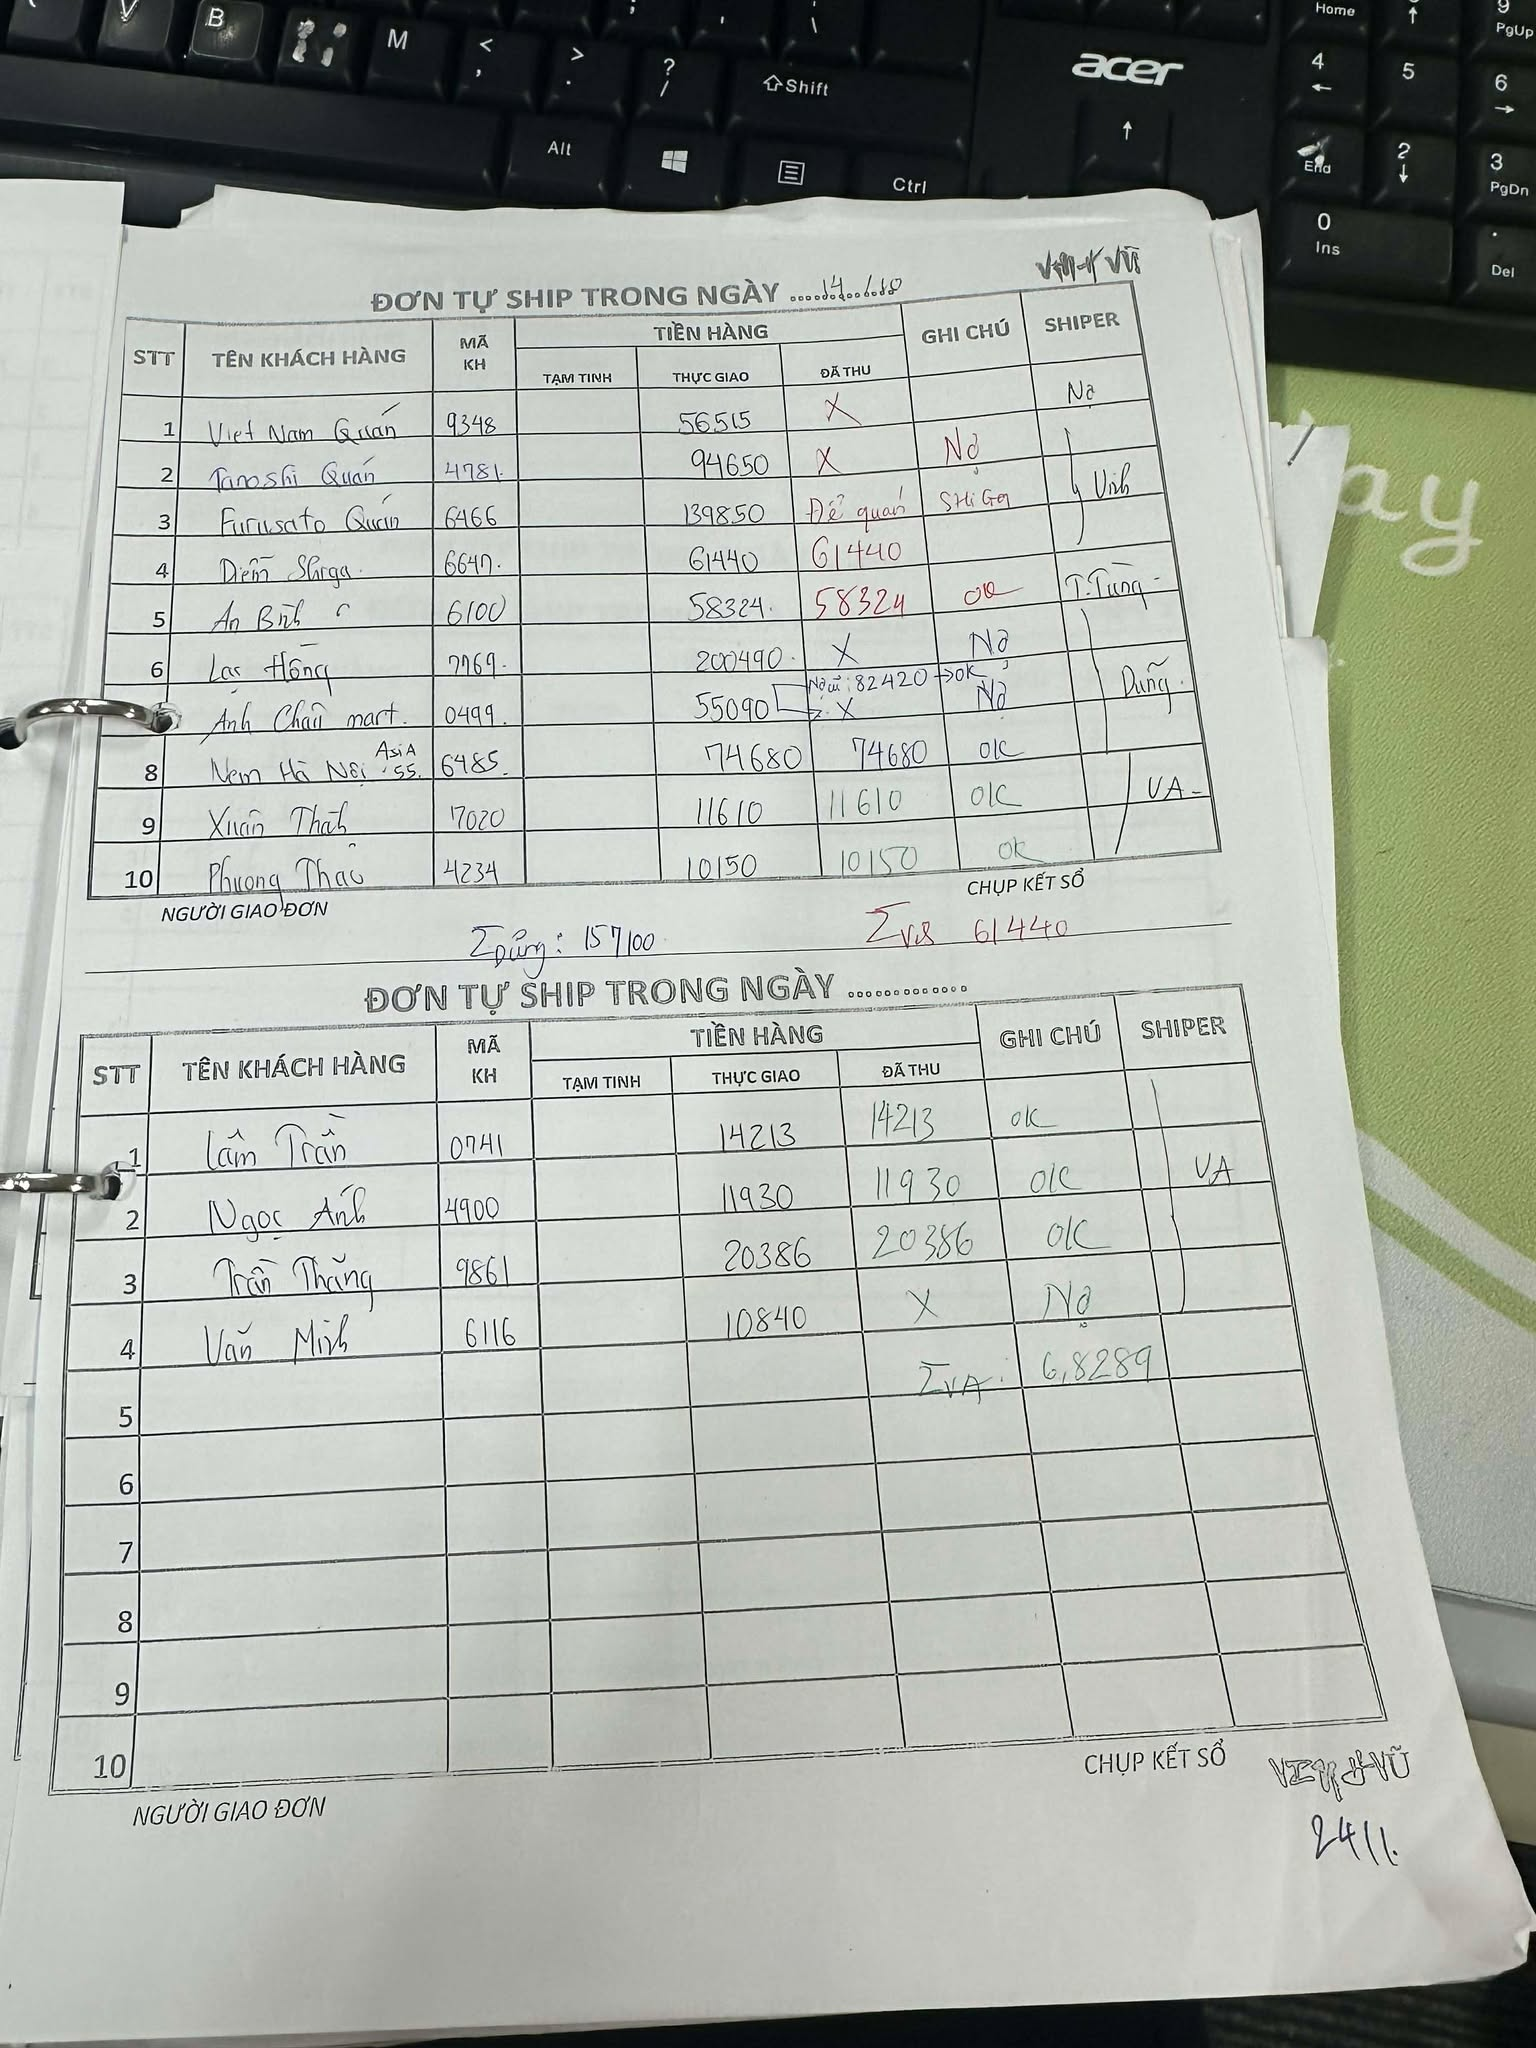 V B M < , > . ? / ⇧Shift acer Home ↑ 9 PgUp
Alt Ctrl ↑ 4 ← 5 6 →
End 2 ↓ 3 PgDn
0 Ins . Del
ay
VŨ
ĐƠN TỰ SHIP TRONG NGÀY
STT TÊN KHÁCH HÀNG MÃ KH TIỀN HÀNG GHI CHÚ SHIPER
TẠM TINH THỰC GIAO ĐÃ THU
1 Việt Nam Quán 9348 56515 X Nợ
2 Tanoshi Quán 4781. 94650 X Nợ
3 Furusato Quán 6466 139850 Để quán SHiGa Vinh
4 Diễm Shiga. 6647. 61440 61440
5 An Bình 6100 58324. 58324 OK T.Tùng -
6 Lạc Hồng 7769. 200490. X Nợ
Nợ cũ: 82420 → OK
Anh Châu mart. 0499. 55090 X Nợ Dũng.
8 Nem Hà Nội AsiA 55. 6485. 74680 74680 OK
9 Xuân Thành 7020 11610 11610 OK VA -
10 Phương Thảo 4234 10150 10150 OK
NGƯỜI GIAO ĐƠN CHỤP KẾT SỔ
Σ Dũng: 157100. Σ 61440
ĐƠN TỰ SHIP TRONG NGÀY .............
STT TÊN KHÁCH HÀNG MÃ KH TIỀN HÀNG GHI CHÚ SHIPER
TẠM TINH THỰC GIAO ĐÃ THU
1 Lâm Trần 0741 14213 14213 OK
2 Ngọc Ánh 4900 11930 11930 OK VA
3 Trần Thắng 9861 20386 20386 OK
4 Văn Minh 6116 10840 X Nợ
5 ΣVA: 6,8289
6
7
8
9
10
NGƯỜI GIAO ĐƠN CHỤP KẾT SỔ
VŨ
24/1.